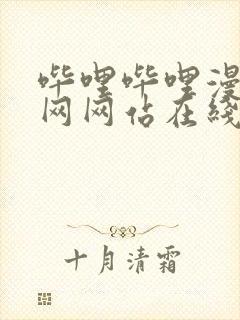 哔哩哔哩漫
网网站在线
十月清霜